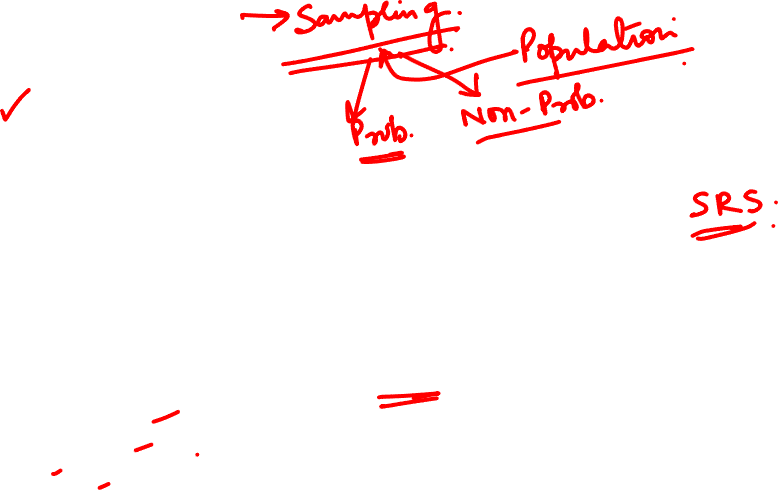 → Sampling.
Population.
Prob.
Non-Prob.
SRS.